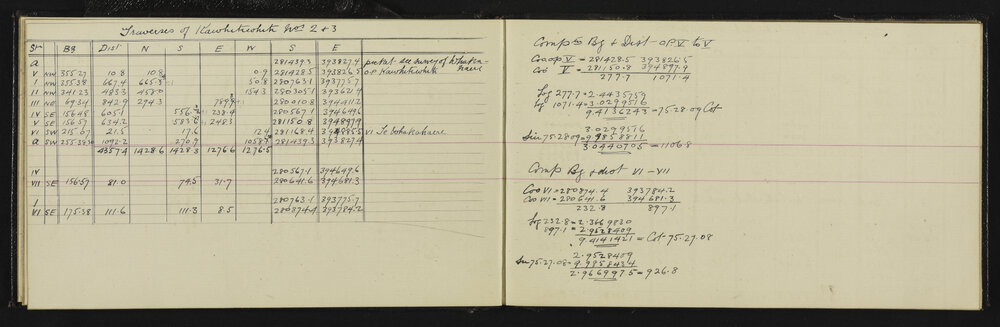 Traverses of Kawhitiwhiti Nos 2 & 3
Stn Bg Dist N S E W S E
a 281439.3 393827.4 picket see survey of
V NW 355.27 10.8 10.8 10.9 281428.5 393826.5 O.P. Kawhitiwhiti
I NW 355.38 667.4 665.3 50.8 280763.1 393775.7
II NW 341.23 483.3 458.0 154.3 280305.1 393621.4
III NE 69.34 842.9 294.3 789.9 280010.8 394411.2
IV SE 156.48 605.1 556.2 238.4 280567.1 394649.6
V SE 156.57 634.2 583.6 248.3 281150.8 394897.9
VI SW 215.67 21.5 17.6 12.4 281168.4 394885.5 VI
a SW 255.38.30 1092.2 270.9 1058.1 281439.3 393827.4
4357.4 1428.6 1428.3 1276.6 1276.5
IV 280567.1 394649.6
VII SE 156.57 81.0 74.5 31.7 280641.6 394681.3
I 280763.1 393775.7
VI SE 175.38 111.6 111.3 8.5 280874.4 393784.2
Comp to Bg & Dist - OP V to V
Co op V = 281428.5 393826.5
Coo V = 281150.8 394897.9
277.7 1071.4
Log 277.7 = 2.4435759
log 1071.4 = 3.0299516
9.4136243 = 75.28.09 Cot
3.0299576
Sin 75.28.09 = 9.9858811
3.0440705 = 1106.8
Comp Bg & dist VI - VII
Coo VI = 280874.4 393784.2
Coo VII = 280641.6 394681.3
232.8 897.1
Log 232.8 = 2.3669830
897.1 = 2.9528409
9.4141421 = Cot 75.27.08
2.9528409
Sin 75.27.08 = 9.9858434
2.9669975 = 926.8